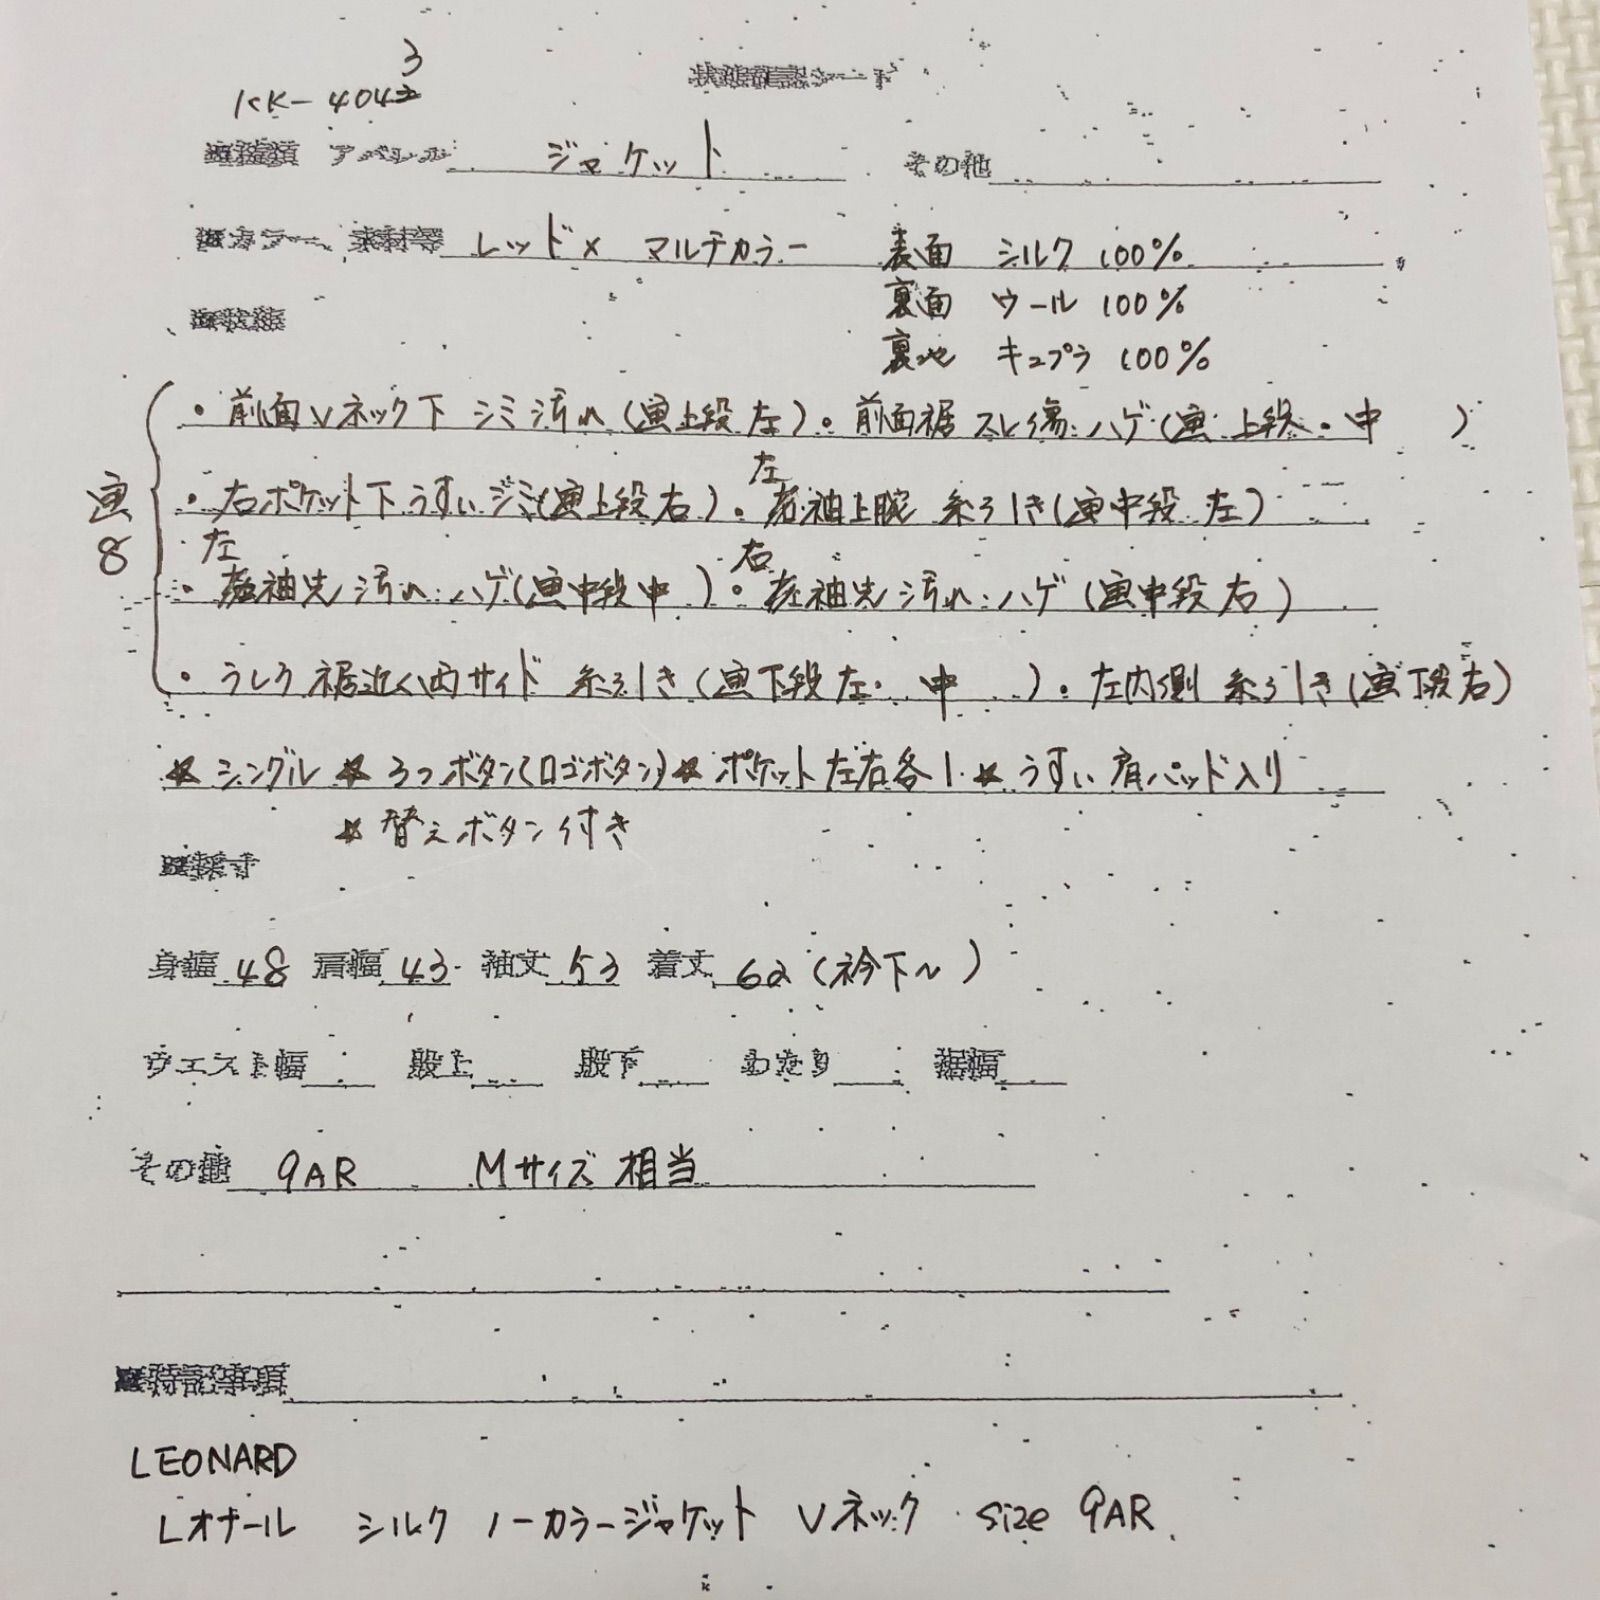 KK-4043
状態確認シート
■種類 アパレル ジャケット その他
■カラー、素材等 レッド× マルチカラー 表面 シルク 100%
裏面 ウール 100%
■状態
裏地 キュプラ 100%
・前面Vネック下 シミ汚れ(画上段左)・前面裾 スレ傷・ハゲ(画 上段・中)
・右ポケット下 うすいシミ(画上段右)・左袖上腕 糸引き(画中段 左)
画8
・左袖先 汚れ・ハゲ(画中段中)・右袖先 汚れ・ハゲ(画中段右)
・うしろ 裾近く両サイド 糸引き(画下段左・中)・左内側 糸引き(画下段右)
★シングル ★3つボタン(ロゴボタン)★ポケット左右各1 ★うすい肩パッド入り
★替えボタン付き
■採寸
身幅 48 肩幅 43 袖丈 53 着丈 62(衿下~)
ウエスト幅 股上 股下 わたり 裾幅
その他 9AR Mサイズ相当
■特記事項
LEONARD
レオナール シルク ノーカラージャケット Vネック size 9AR